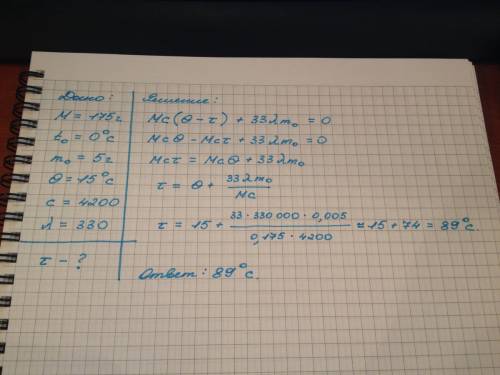 Дано:
M = 175г
t₀ = 0°с
m₀ = 5г
θ = 15°с
c = 4200
λ = 330
τ - ?
Решение:
Mc(θ - τ) + 33λm₀ = 0
Mcθ - Mcτ + 33λm₀ = 0
Mcτ = Mcθ + 33λm₀
τ = θ + 33λm₀ / Mc
τ = 15 + 33 · 330 000 · 0,005 / 0,175 · 4200 ≈ 15 + 74 = 89°с.
Ответ: 89°с.